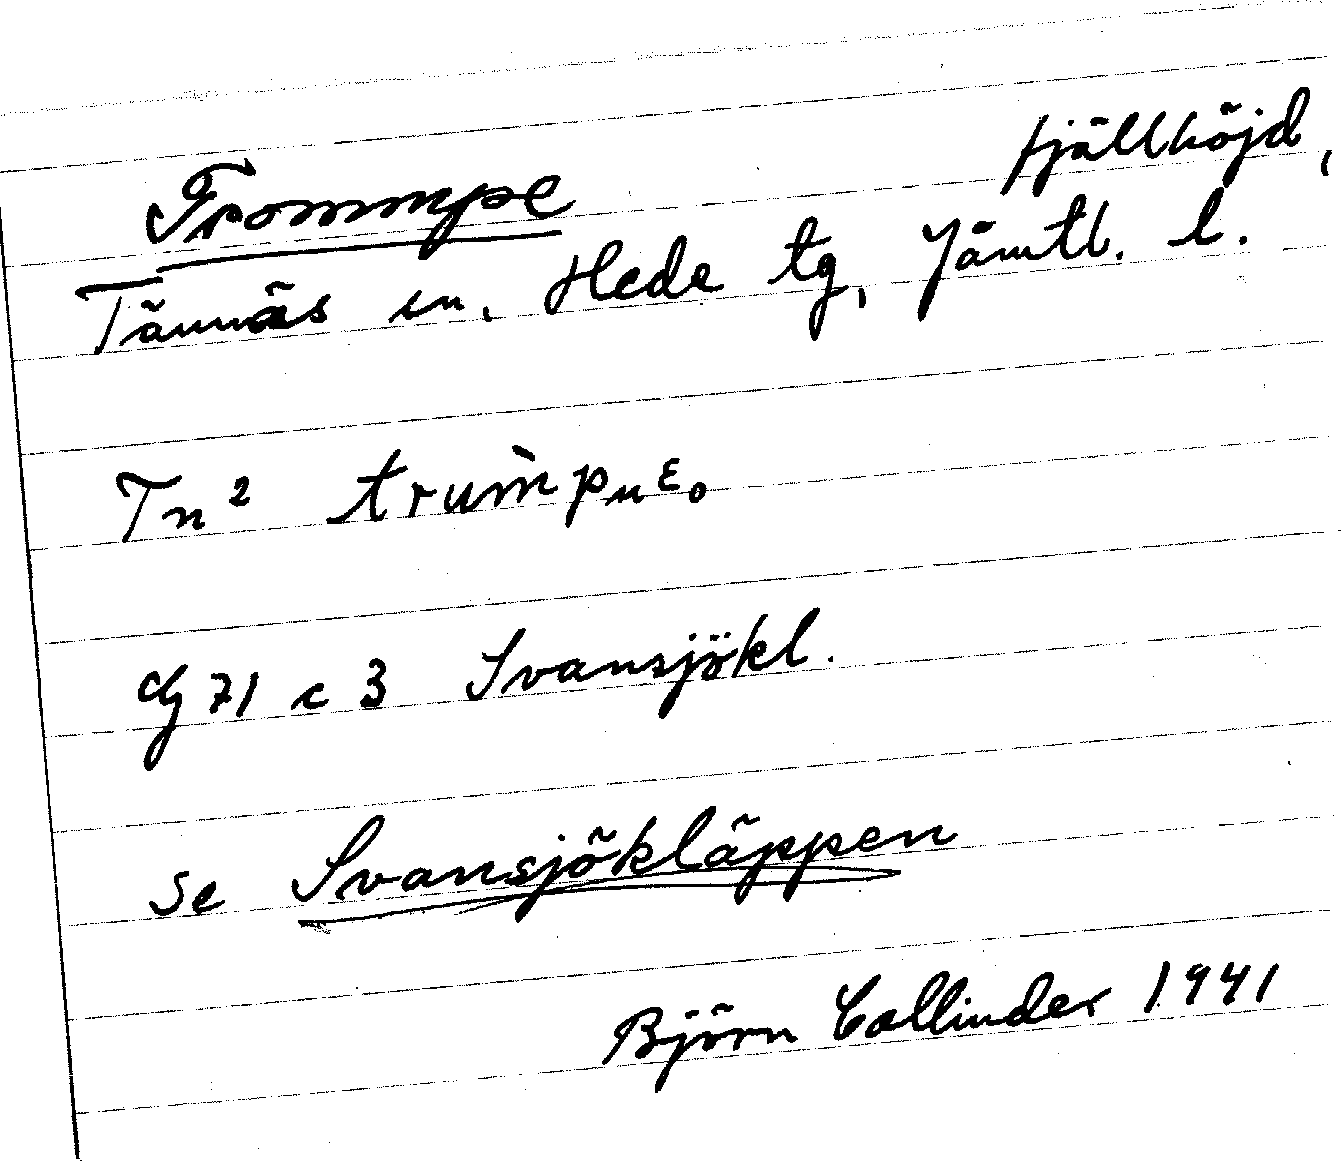 Trommpe fjällhöjd,
Tännäs sn, Hede tg, Jämtl. l.
Tn 2 trum̀puɛ.
Gg 71 c 3 Svansjökl.
se Svansjökläppen
Björn Collinder 1941